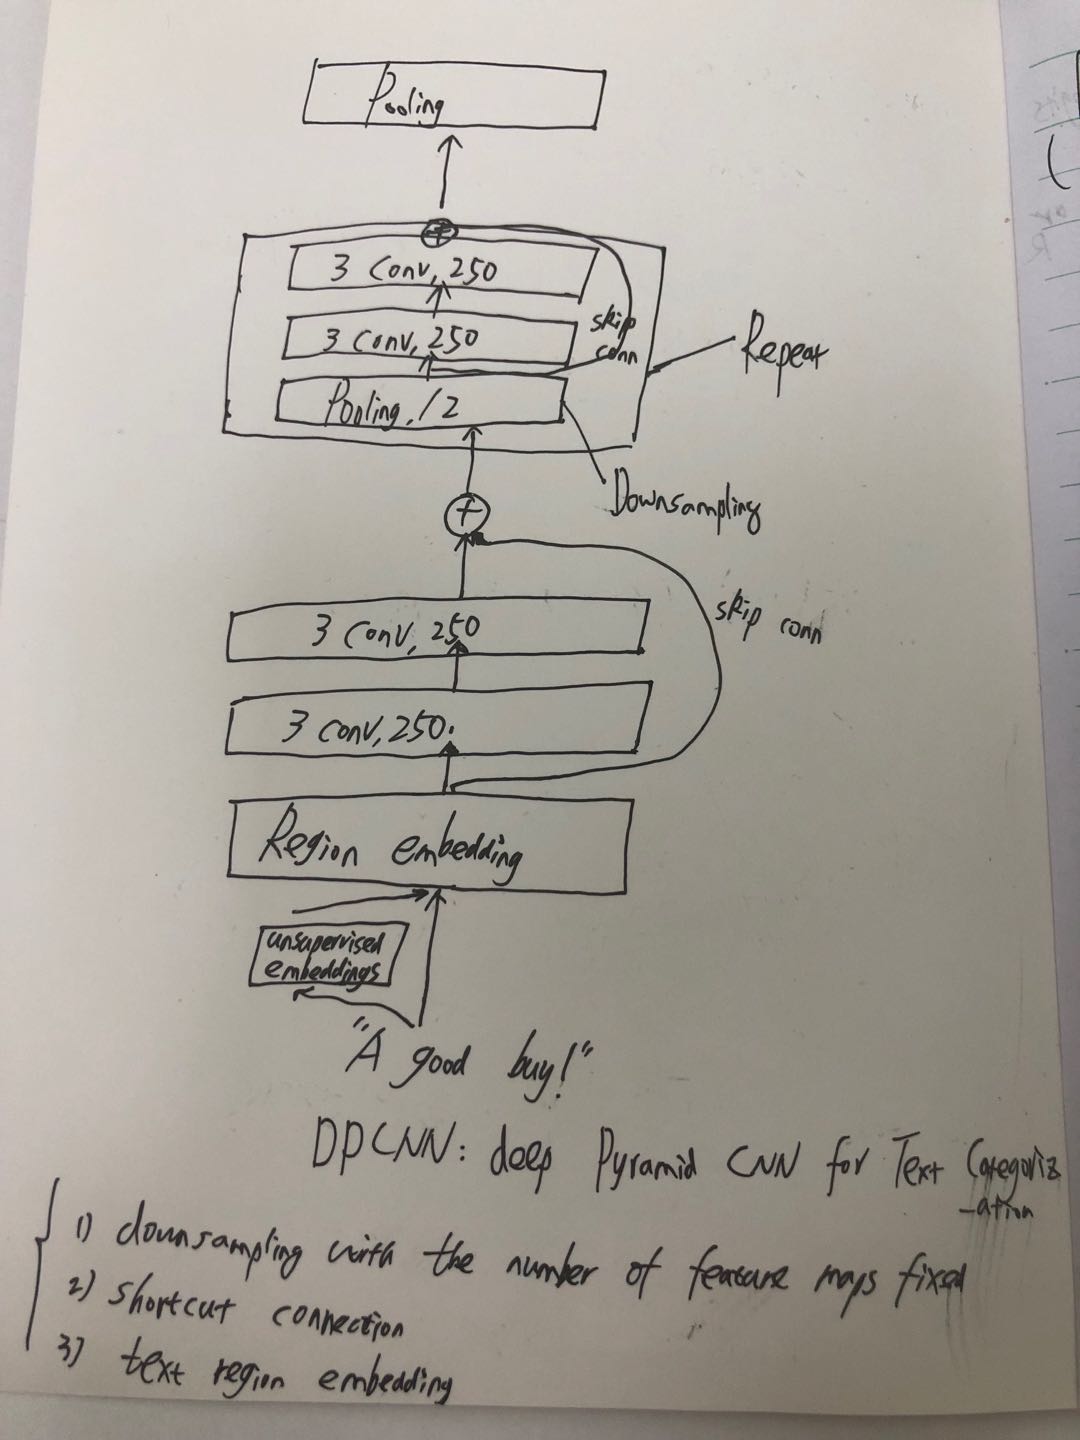 Pooling
3 Conv, 250
3 Conv, 250
skip
conn
Repeat
Pooling, /2
Downsampling
3 Conv, 250
skip conn
3 conv, 250.
Region embedding
unsupervised
embeddings
"A good buy!"
DPCNN: deep Pyramid CNN for Text Categoriz
-ation
1) downsampling with the number of feature maps fixed
2) shortcut connection
3) text region embedding